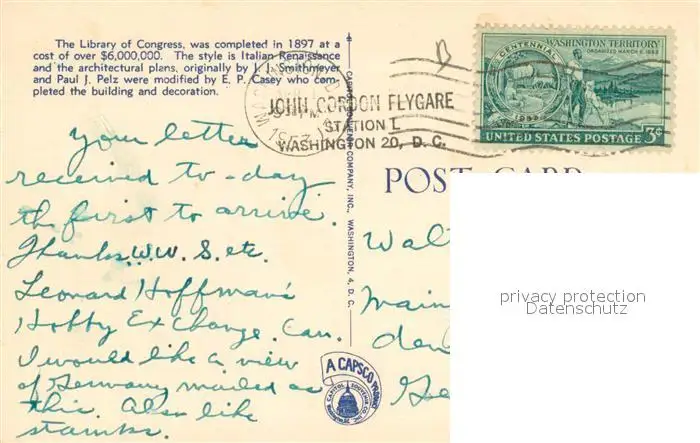 The Library of Congress, was completed in 1897 at a
cost of over $6,000,000. The style is Italian Renaissance
and the architectural plans, originally by J. J. Smithmeyer
and Paul J. Pelz were modified by E. P. Casey who com-
pleted the building and decoration.
your letter
received to-day
the first to arrive.
Thanks. W.W. S. etc.
Leonard Hoffman's
Hobby Exchange. Can.
I would like a view
of Germany mailed as
this. Also like
stamps.
CAPITOL SOUVENIR COMPANY, INC., WASHINGTON, 4, D. C.
A CAPSCO PRODUCT
CAPITOL SOUVENIR CO., INC.
WASHINGTON
1953
JOHN GORDON FLYGARE
STATION 1
WASHINGTON 20, D. C.
CENTENNIAL
1953
WASHINGTON TERRITORY
ORGANIZED MARCH 2, 1853
UNITED STATES POSTAGE 3¢
POST CARD
Walt
Main
den
Ge
privacy protection
Datenschutz